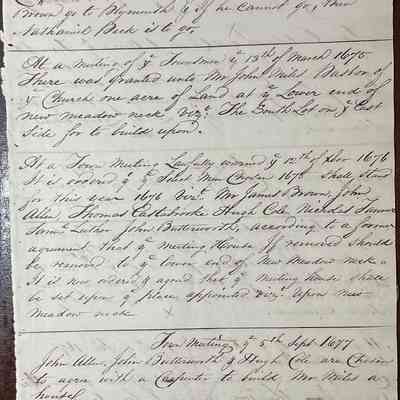 Brown go to Plymouth & if he cannot go, then
Nathaniel Peck is to go.
At a meeting of ye Townsmen ye 13th of March 1675
There was granted unto Mr John Miles Pastor of
ye Church one acre of Land at ye Lower end of
new meadow neck Vizt. The South Lot on ye East
Side for to build upon.
At a Town Meeting Lawfully warned ye 12th of 1676
It is ordered ye ye Select Men Chosen 1675 Shall Stand
for this year 1676 Vizt. Mr James Brown, John
Allen, Thomas Eastabrooke Hugh Cole, Nicholas Tanner
Saml. Luther John Butterworth, according to a former
agreement that ye Meeting House if removed should
be removed to ye lower end of New Meadow neck &
It is now ordered & agreed that ye meeting house shall
be set upon ye place appointed Vizt. Upon new
meadow neck
Town Meeting ye 5th Sept 1677
John Allen, John Butterworth & Hugh Cole are Chosen
to agree with a Carpenter to build Mr Miles a
house